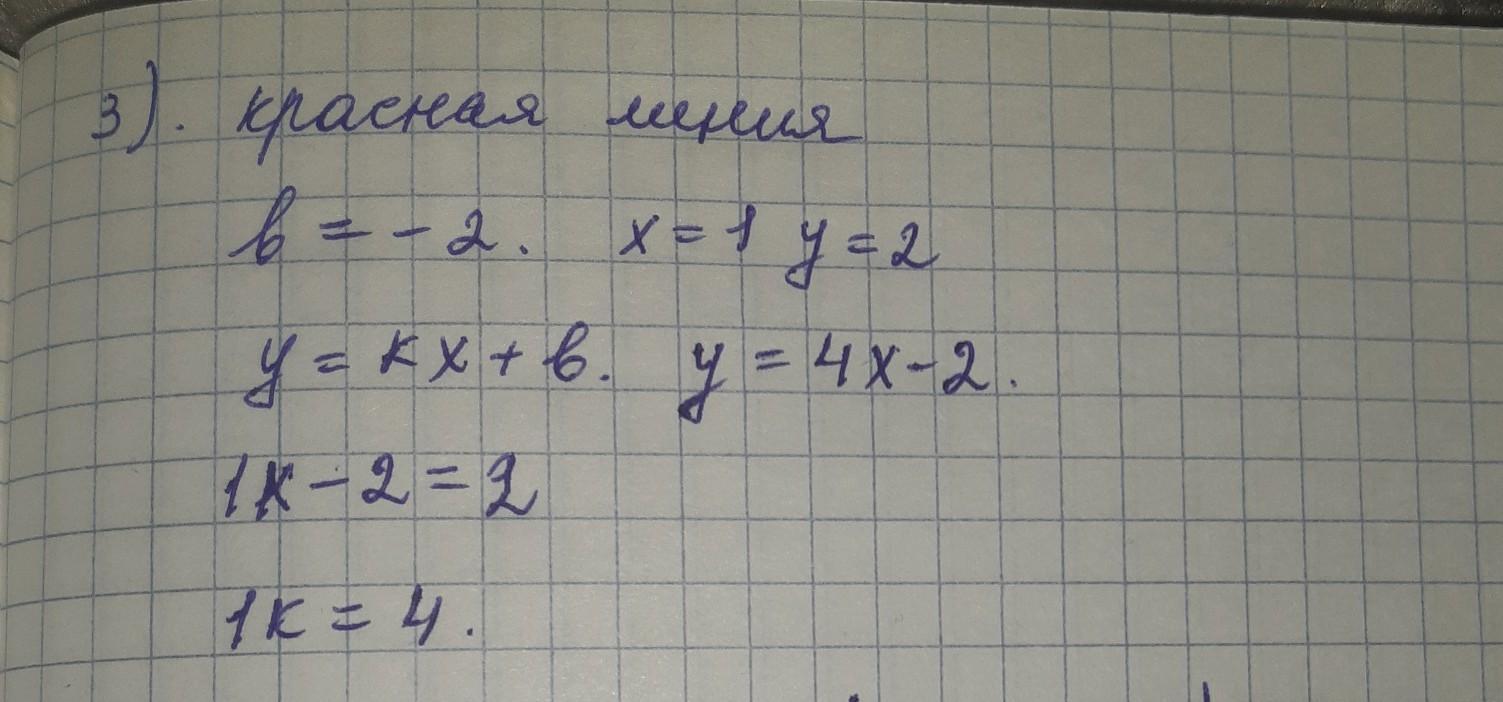 3). красная линия
в = - 2. х = 1 у = 2
у = кх + в. у = 4х - 2.
1к - 2 = 2
1к = 4.